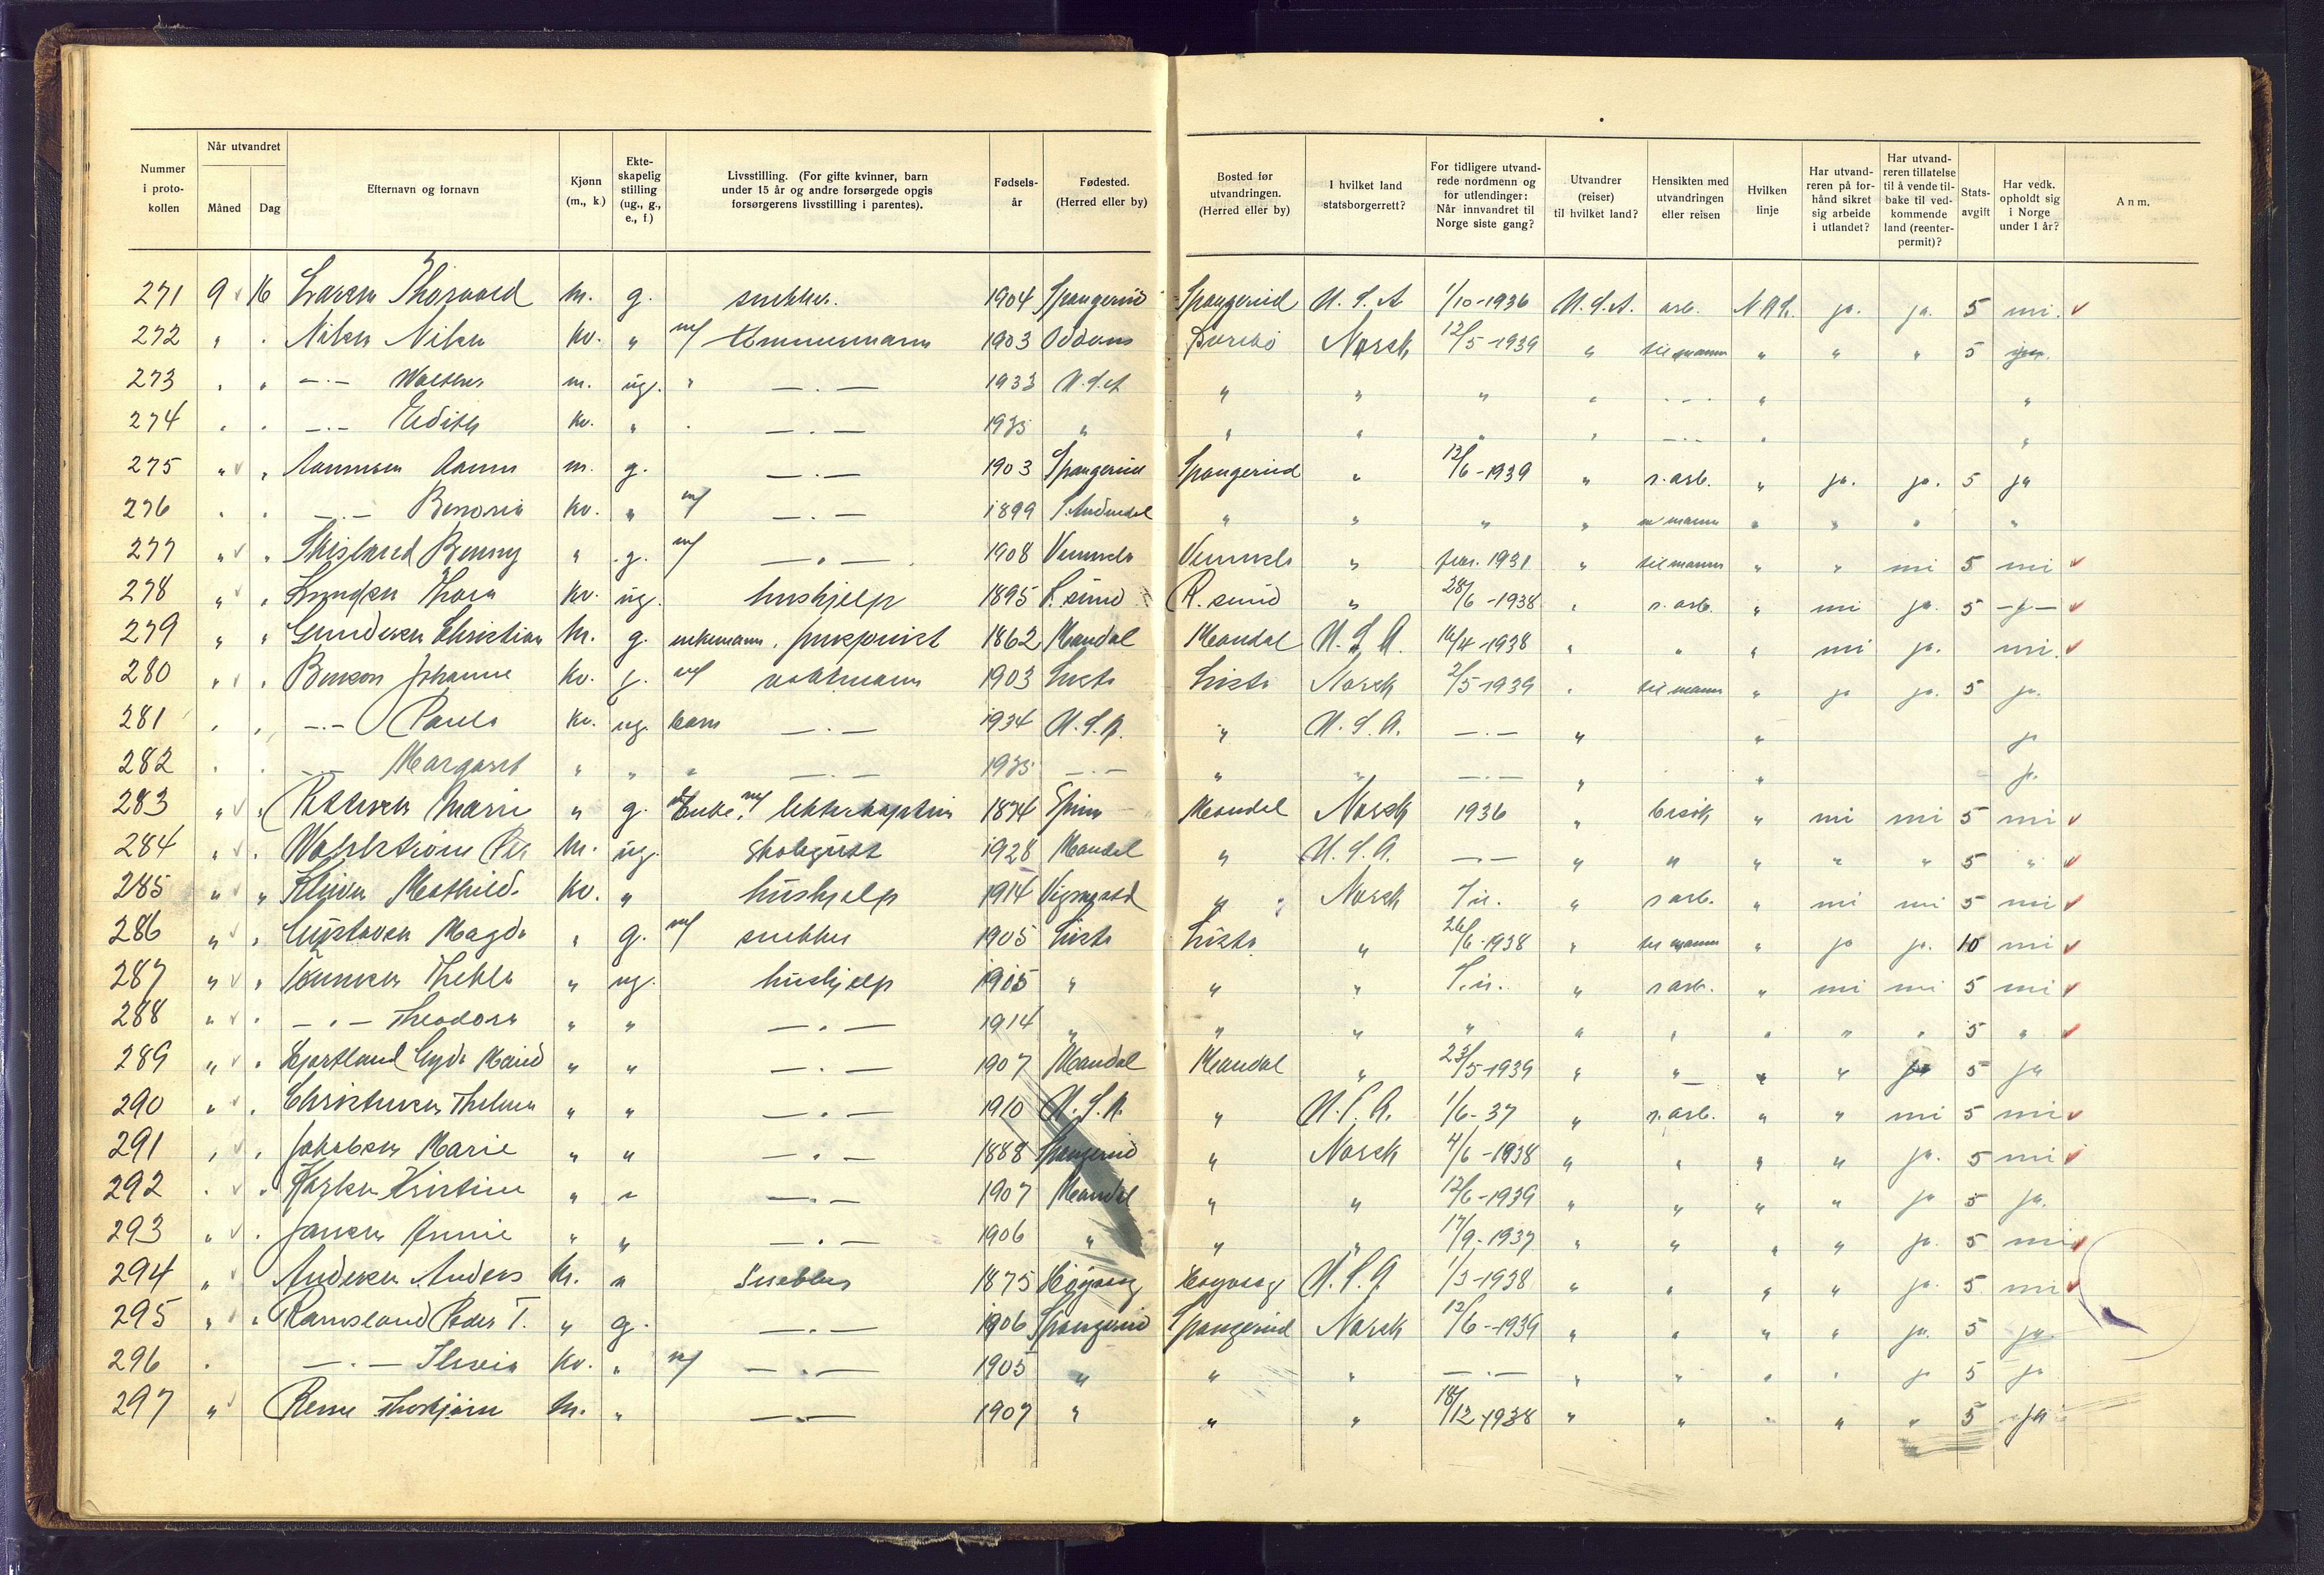 Nummer i proto-kollen | Når utvandret Måned | Dag | Efternavn og fornavn | Kjønn (m., k.) | Ekte-skapelig stilling (ug., g., e., f.) | Livsstilling. (For gifte kvinner, barn under 15 år og andre forsørgede opgis forsørgerens livsstilling i parentes). | Fødsels-år | Fødested. (Herred eller by) | Bosted før utvandringen. (Herred eller by) | I hvilket land statsborgerrett? | For tidligere utvand-rede nordmenn og for utlendinger: Når innvandret til Norge siste gang? | Utvandrer (reiser) til hvilket land? | Hensikten med utvandringen eller reisen | Hvilken linje | Har utvand-reren på for-hånd sikret sig arbeide i utlandet? | Har utvand-reren tillatelse til å vende til-bake til ved-kommende land (reenter-permit)? | Stats-avgift | Har vedk. opholdt sig i Norge under 1 år? | Anm.
271 9 16 Larsen Thorvald m. g. snekker. 1904 Spangereid Spangereid U.S.A 1/10-1936 U.S.A. arb. N.A.L. ja. ja. 5 nei.
272 " " Nilsen kv. " m/ tømmermann 1903 Oddernes Norsk 12/5-1939 " til mann " " " 5
273 " " —.— Walther m. ug. " —.— 1933 U.S.A " " " " —.— " "
274 " " —.— Edith kv. " " —.— 1935 " " " " " —.— " "
275 " " Aanensen m. g. —.— 1903 Spangereid Spangereid " 12/6-1939 " s. arb. " ja. ja. 5 ja
276 " " —.— kv. " m/ —.— 1899 S. Audnedal " " " " m mann " " " "
277 " " Benny " g. m/ —.— 1908 Vennesla Vennesla " 1931 " til mann " " nei 5 nei
278 " " Knudsen Thora kv. ug. hushjelp 1895 F.sund F.sund " 28/6-1938 " s. arb. " nei ja. 5 —"—
279 " " Gundersen Christian m. g. enkemann. 1862 Mandal Mandal U.S.A. 16/4-1938 " " " nei ja. nei.
280 " " Benson Johanne kv. g. m/ vaktmann 1903 Lista Lista Norsk 2/5-1939 " til mann " ja ja. 5 ja.
281 " " —.— Paula kv. ug. barn —.— 1934 U.S.A. " U.S.A. —.— " " ja
282 " " —.— Margaret " " " —.— 1935 —.— " " —.— " " ja.
283 " " Marie " g. Enke m/ 1874 Spind Mandal Norsk 1936 " besøk " nei nei 5 nei
284 " " Wahlstrøm Per m. ug. skolegutt 1928 Mandal " U.S.A. —.— " " " " " 5 "
285 " " Mathild. kv. " hushjelp 1914 Vigmostad " Norsk F.u. " s arb. " nei nei 5 nei
286 " " Gustavsen Magda " g. m/ snekker 1905 Lista Lista " 26/6-1938 " til mann " ja ja. 10 nei
287 " " Tønnesen Thekla " ug. hushjelp 1905 " " " F.u. " s arb. " nei nei 5 nei
288 " " —.— Theodora " " —.— 1914 " " " " " " " " " 5 "
289 " " Gyda " " —.— 1907 Mandal Mandal " 23/5-1939 " " " " ja 5 ja
290 " " Christensen Thelma " " —.— 1910 U.S.A. " U.S.A. 1/6-37 " s. arb. " " nei 5 nei
291 " " Jakobsen Marie " " —.— 1888 Spangereid " Norsk 4/6-1938 " " " " ja. 5 nei
292 " " Kristine " " —.— 1907 Mandal " " 12/6-1939 " " " " ja 5 ja.
293 " " Jansen Annie " " —.— 1906 " " " 17/9-1937 " " " " ja. 5 nei
294 " " Andersen Anders m. " Snekker 1875 Høyvåg Høyvåg U.S.A 1/3-1938 " " " " ja. 5 nei
295 " " Ramsland Peder T. " g. —.— 1906 Spangereid Spangereid Norsk 12/6-1939 " " " " ja. 5 ja
296 " —.— kv. " m/ —.— 1905 " " " —.— " " " " ja 5 ja
297 " Thorbjørn m. " —.— 1907 " " " 18/12-1938 " " " " " 5 ja